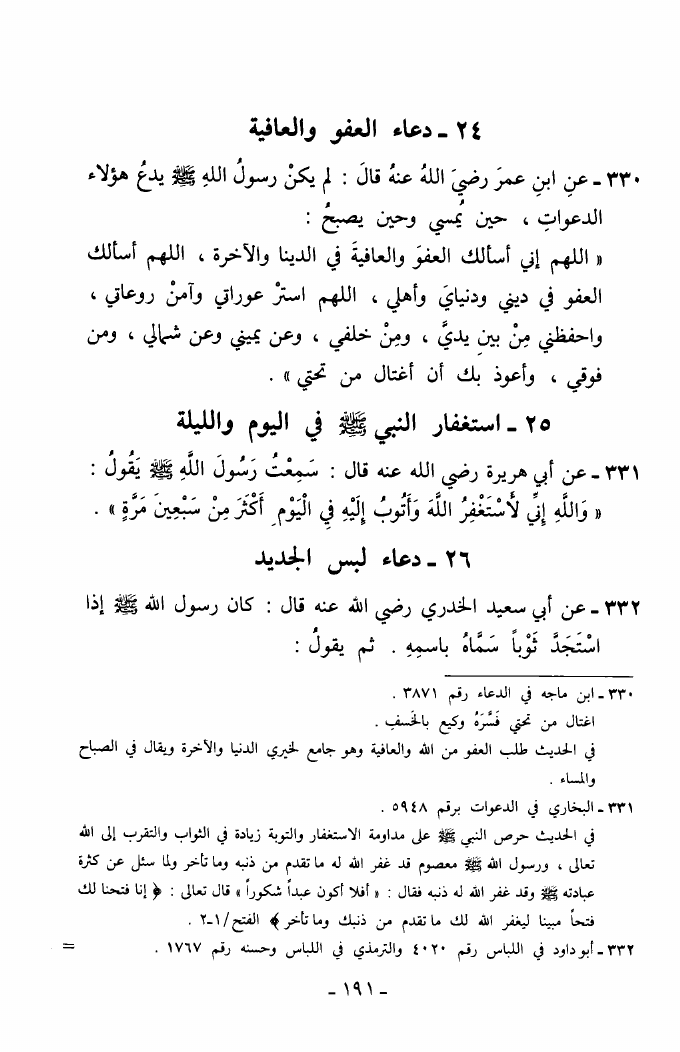 ٢٤ ـ دعاء العفو والعافية
٣٣٠ ـ عنِ ابنِ عمرَ رضيَ اللهُ عنهُ قالَ : لم يكنْ رسولُ اللهِ ﷺ يدعُ هؤلاء
الدعواتِ ، حين يُمسي وحين يصبحُ :
« اللهم إني أسألك العفوَ والعافيةَ في الدينا والآخرة ، اللهم أسألك
العفو في ديني ودنيايَ وأهلي ، اللهم استرْ عوراتي وآمنْ روعاتي ،
واحفظني مِنْ بينِ يديَّ ، ومِنْ خلفي ، وعن يميني وعن شمالي ، ومن
فوقي ، وأعوذ بك أن أغتال من تحتي » .
٢٥ ـ استغفار النبي ﷺ في اليوم والليلة
٣٣١ ـ عن أبي هريرة رضي الله عنه قال : سَمِعْتُ رَسُولَ اللَّهِ ﷺ يَقُولُ :
« وَاللَّهِ إِنِّي لأَسْتَغْفِرُ اللَّهَ وَأَتُوبُ إِلَيْهِ فِي الْيَوْمِ أَكْثَرَ مِنْ سَبْعِينَ مَرَّةٍ » .
٢٦ ـ دعاء لبس الجديد
٣٣٢ ـ عن أبي سعيد الخدري رضي الله عنه قال : كان رسول الله ﷺ إذا
اسْتَجَدَّ ثَوْباً سَمَّاهُ باسمِهِ . ثم يقولُ :
٣٣٠ ـ ابن ماجه في الدعاء رقم ٣٨٧١ .
اغتال من تحتي فَسَّرَهُ وكيع بالخَسفِ .
في الحديث طلب العفو من الله والعافية وهو جامع لخيري الدنيا والآخرة ويقال في الصباح
والمساء .
٣٣١ ـ البخاري في الدعوات برقم ٥٩٤٨ .
في الحديث حرص النبي ﷺ على مداومة الاستغفار والتوبة زيادة في الثواب والتقرب إلى الله
تعالى ، ورسول الله ﷺ معصوم قد غفر الله له ما تقدم من ذنبه وما تأخر ولما سئل عن كثرة
عبادته ﷺ وقد غفر الله له ذنبه فقال : « أفلا أكون عبداً شكوراً » قال تعالى : ﴿ إنا فتحنا لك
فتحاً مبينا ليغفر الله لك ما تقدم من ذنبك وما تأخر ﴾ الفتح/١ـ٢ .
٣٣٢ ـ أبو داود في اللباس رقم ٤٠٢٠ والترمذي في اللباس وحسنه رقم ١٧٦٧ . =
ـ ١٩١ ـ